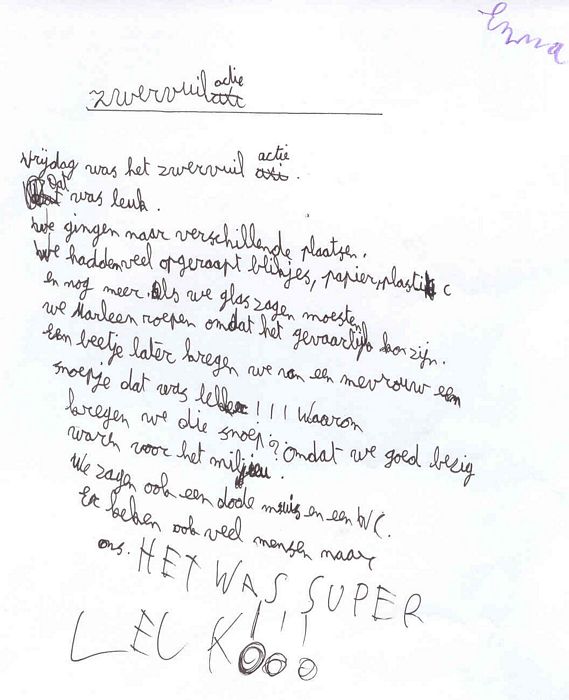 Emma
zwervuilactie
vrijdag was het zwervuil actie.
Dat was leuk.
We gingen naar verschillende plaatsen.
We hadden veel opgeraapt blikjes, papier, plastic
en nog meer. Als we glas zagen moesten
we Marleen roepen omdat het gevaarlijk kon zijn.
Een beetje later kregen we van een mevrouw een
snoepje dat was lekker!!! Waarom
kregen we die snoep? Omdat we goed bezig
waren voor het miljeu.
We zagen ook een dode muis en een WC.
Er keken ook veel mensen naar
ons. HET WAS SUPER
LEUK!!!